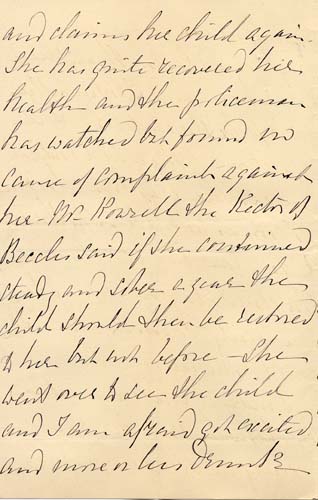 and claims her child again.
She has quite recovered her
health and the policeman
has watched but found no
cause of complaint against
her - Mr Rowsell the Rector of
Beccles said if she continued
steady and sober a year the
child should then be restored
to her but not before - She
went over to see the child
and I am afraid got excited
and more or less drunk